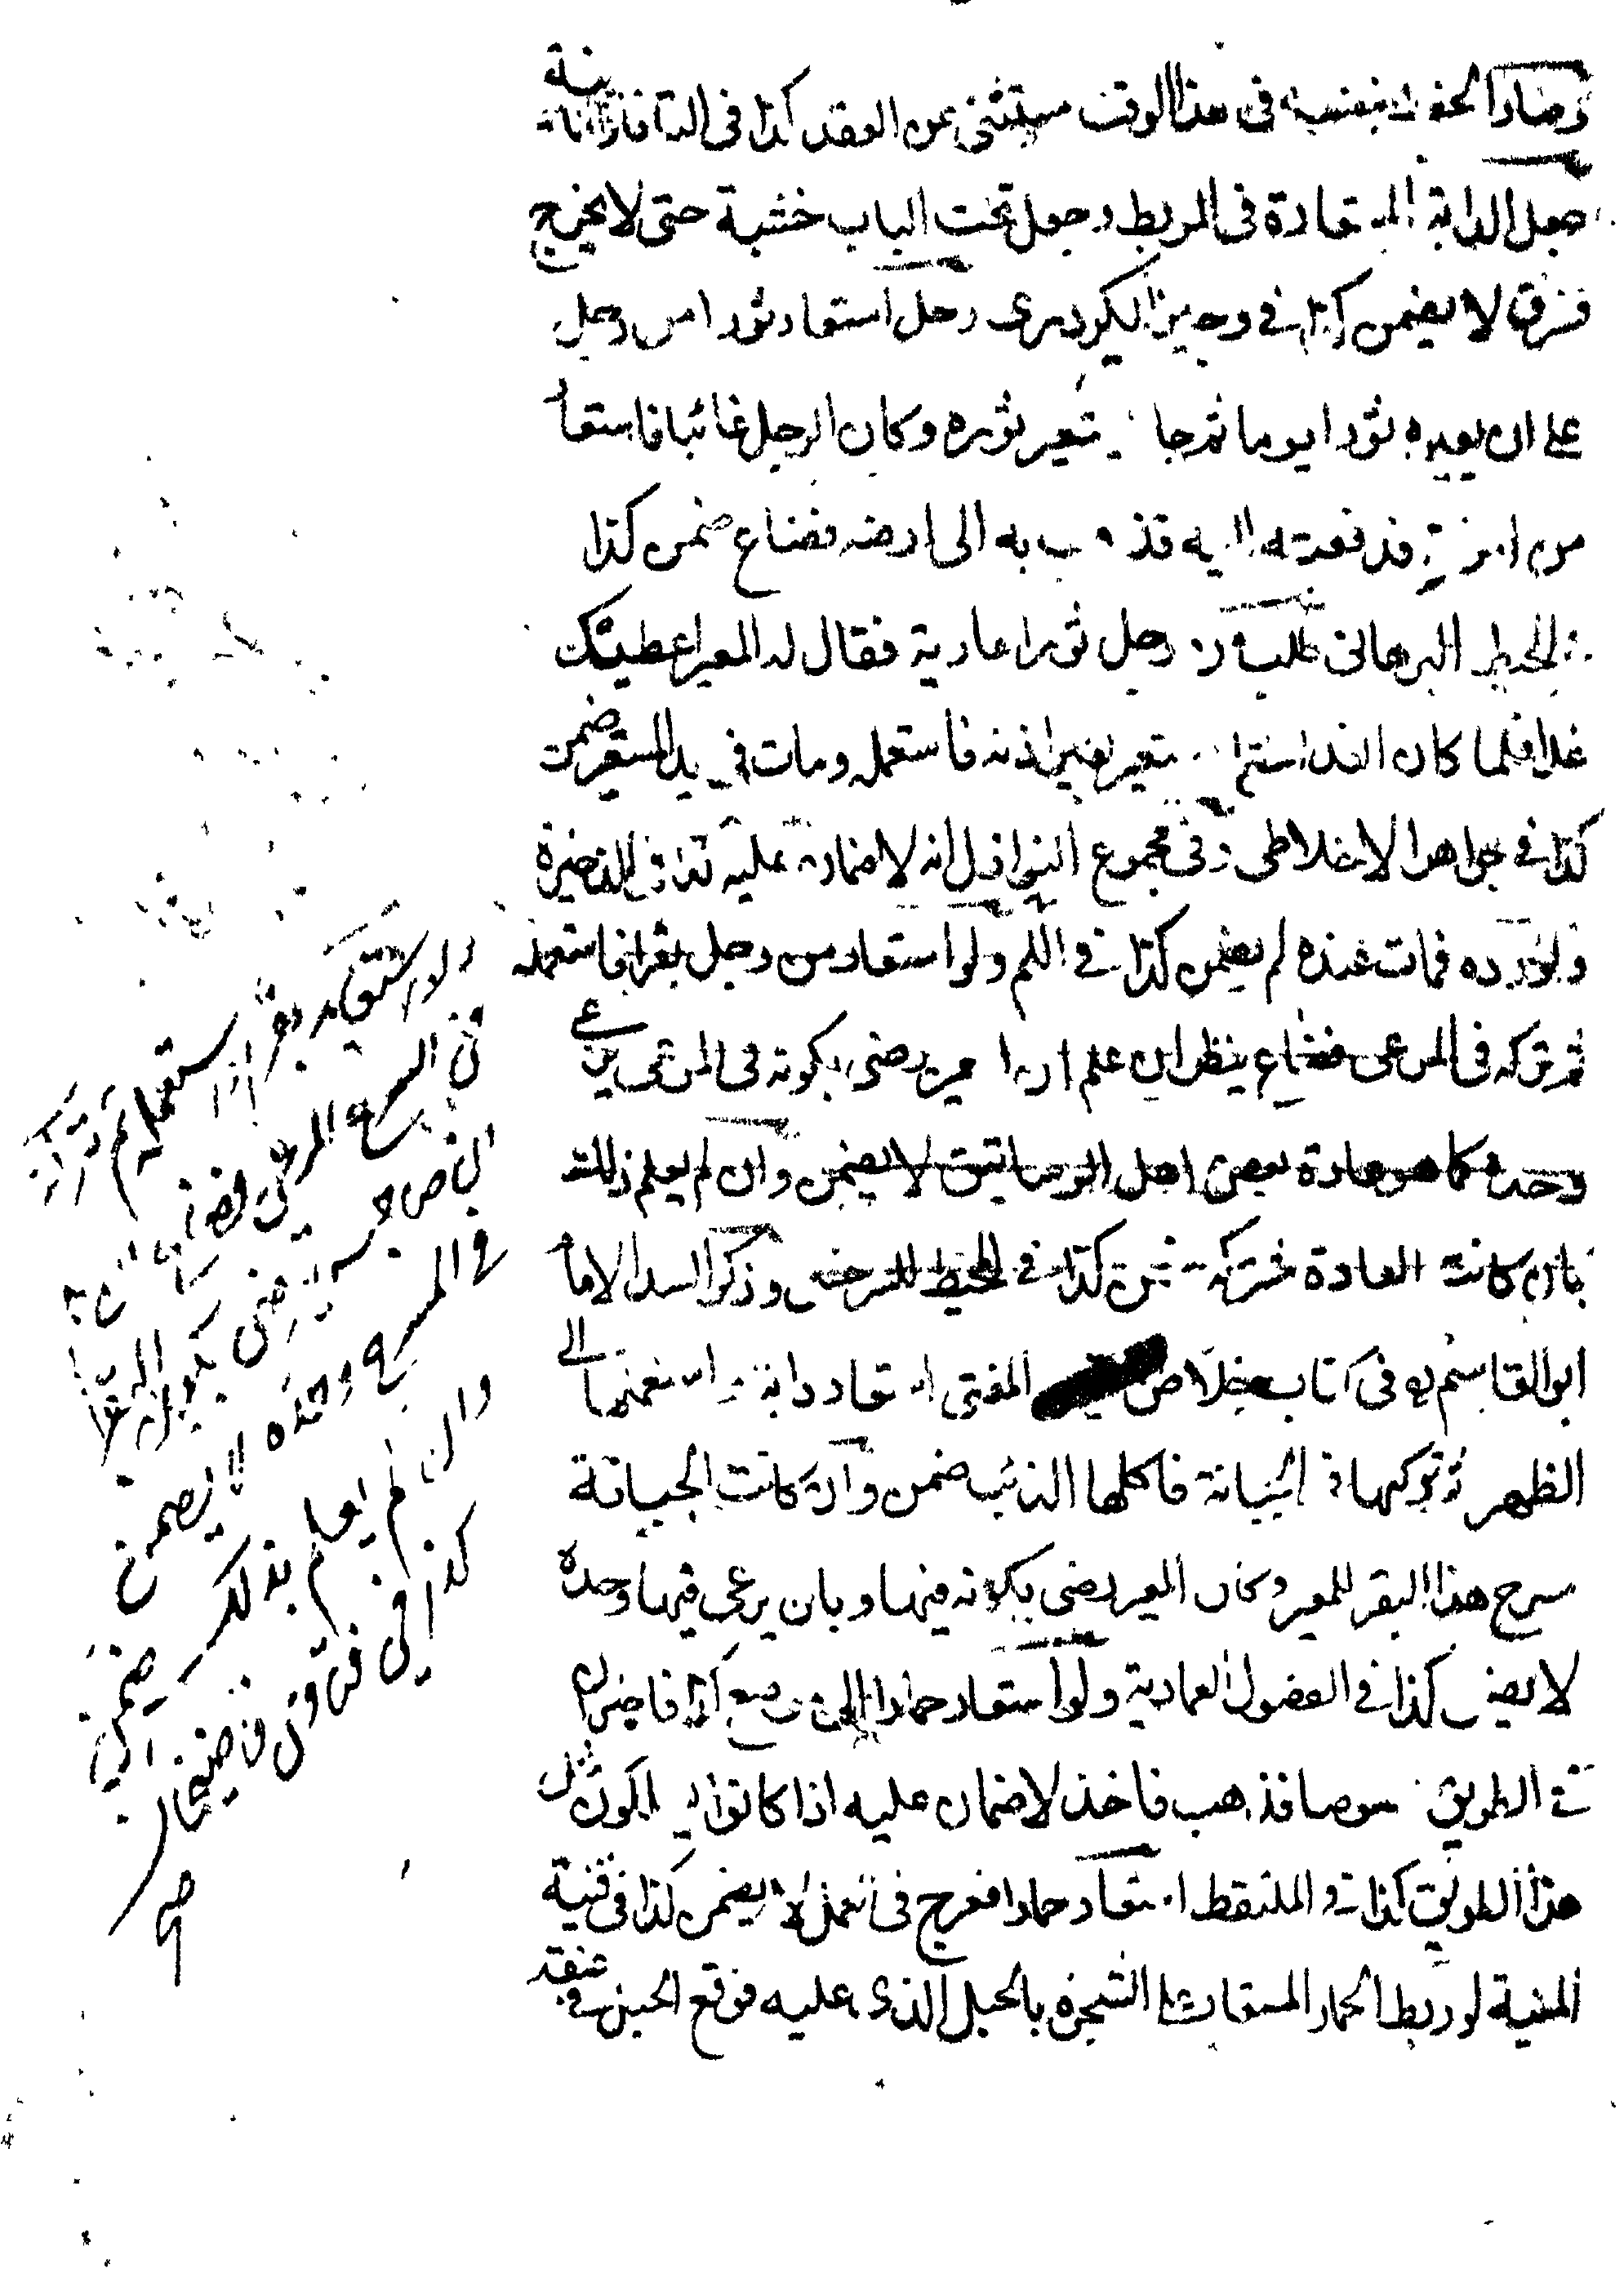 وصار الحفظ بنفسه فى هذا الوقت مستثنى عن العقد كذا فى التاتارخانية
جعل الدابة المستعارة فى المربط وجعل تحت الباب خشبة حتى لا يخرج
فسرق لا يضمن كذا فى وجيز الكردرى رجل استعار ثورا من رجل
على ان يعيره ثورا يوما ثم جاء يستعير ثوره وكان الرجل غائبا فاستعار
من امرأته فدفعته اليه فذهب به الى ارضه فضاع ضمن كذا
فى المحيط البرهانى طلب من رجل ثورا عارية فقال له المعير اعطيتك
غدا فلما كان الغد المستعير بغير اذنه فاستعمله ومات فى يد المستعير ضمن
كذا فى جواهر الاخلاطى وفى مجموع النوازل انه لا ضمان عليه كذا فى الذخيرة
ولو رده فمات عنده لم يضمن كذا فى ولو استعار من رجل بقرا فاستعمله
ثم تركه فى المرعى فضاع ينظر ان علم ان المعير يرضى بكونه فى المرعى يرعى
وحده كما هو عادة بعض اهل الرساتيق لا يضمن وان لم يعلم ذلك
بان كانت العادة مشتركة ضمن كذا فى المحيط للسرخسى وذكر السيد الامام
ابو القاسم فى كتاب خلاص المفتى استعار دابة واستعملها الى
الظهر ثم تركها فى الجبانة فاكلها الذئب ضمن وان كانت الجبانة
مسرح هذا البقر للمعير وكان المعير يرضى بكونه فيها وبان يرعى فيها وحده
لا يضمن كذا فى الفصول العمادية ولو استعار حمارا الى موضع كذا فاخبر ان
فى الطريق لصوصا فذهب فاخذ لا ضمان عليه اذا كانوا يسلكون مثل
هذا الطريق كذا فى الملتقط استعار حمارا فعرج فى العمل لا يضمن كذا فى قنية
المنية لو ربط الحمار المستعار على الشجرة بالحبل الذى عليه فوقع الحبل فى عنقه
ولو استعار بقرا استعمله ثم تركه
فى المسرح المرعى فضاع ان
يرضى بكون البقر
فى المسرح وحده لا يضمن
وان لم يعلم بذلك ضمن
كذا فى فتاوى قاضيخان
صح